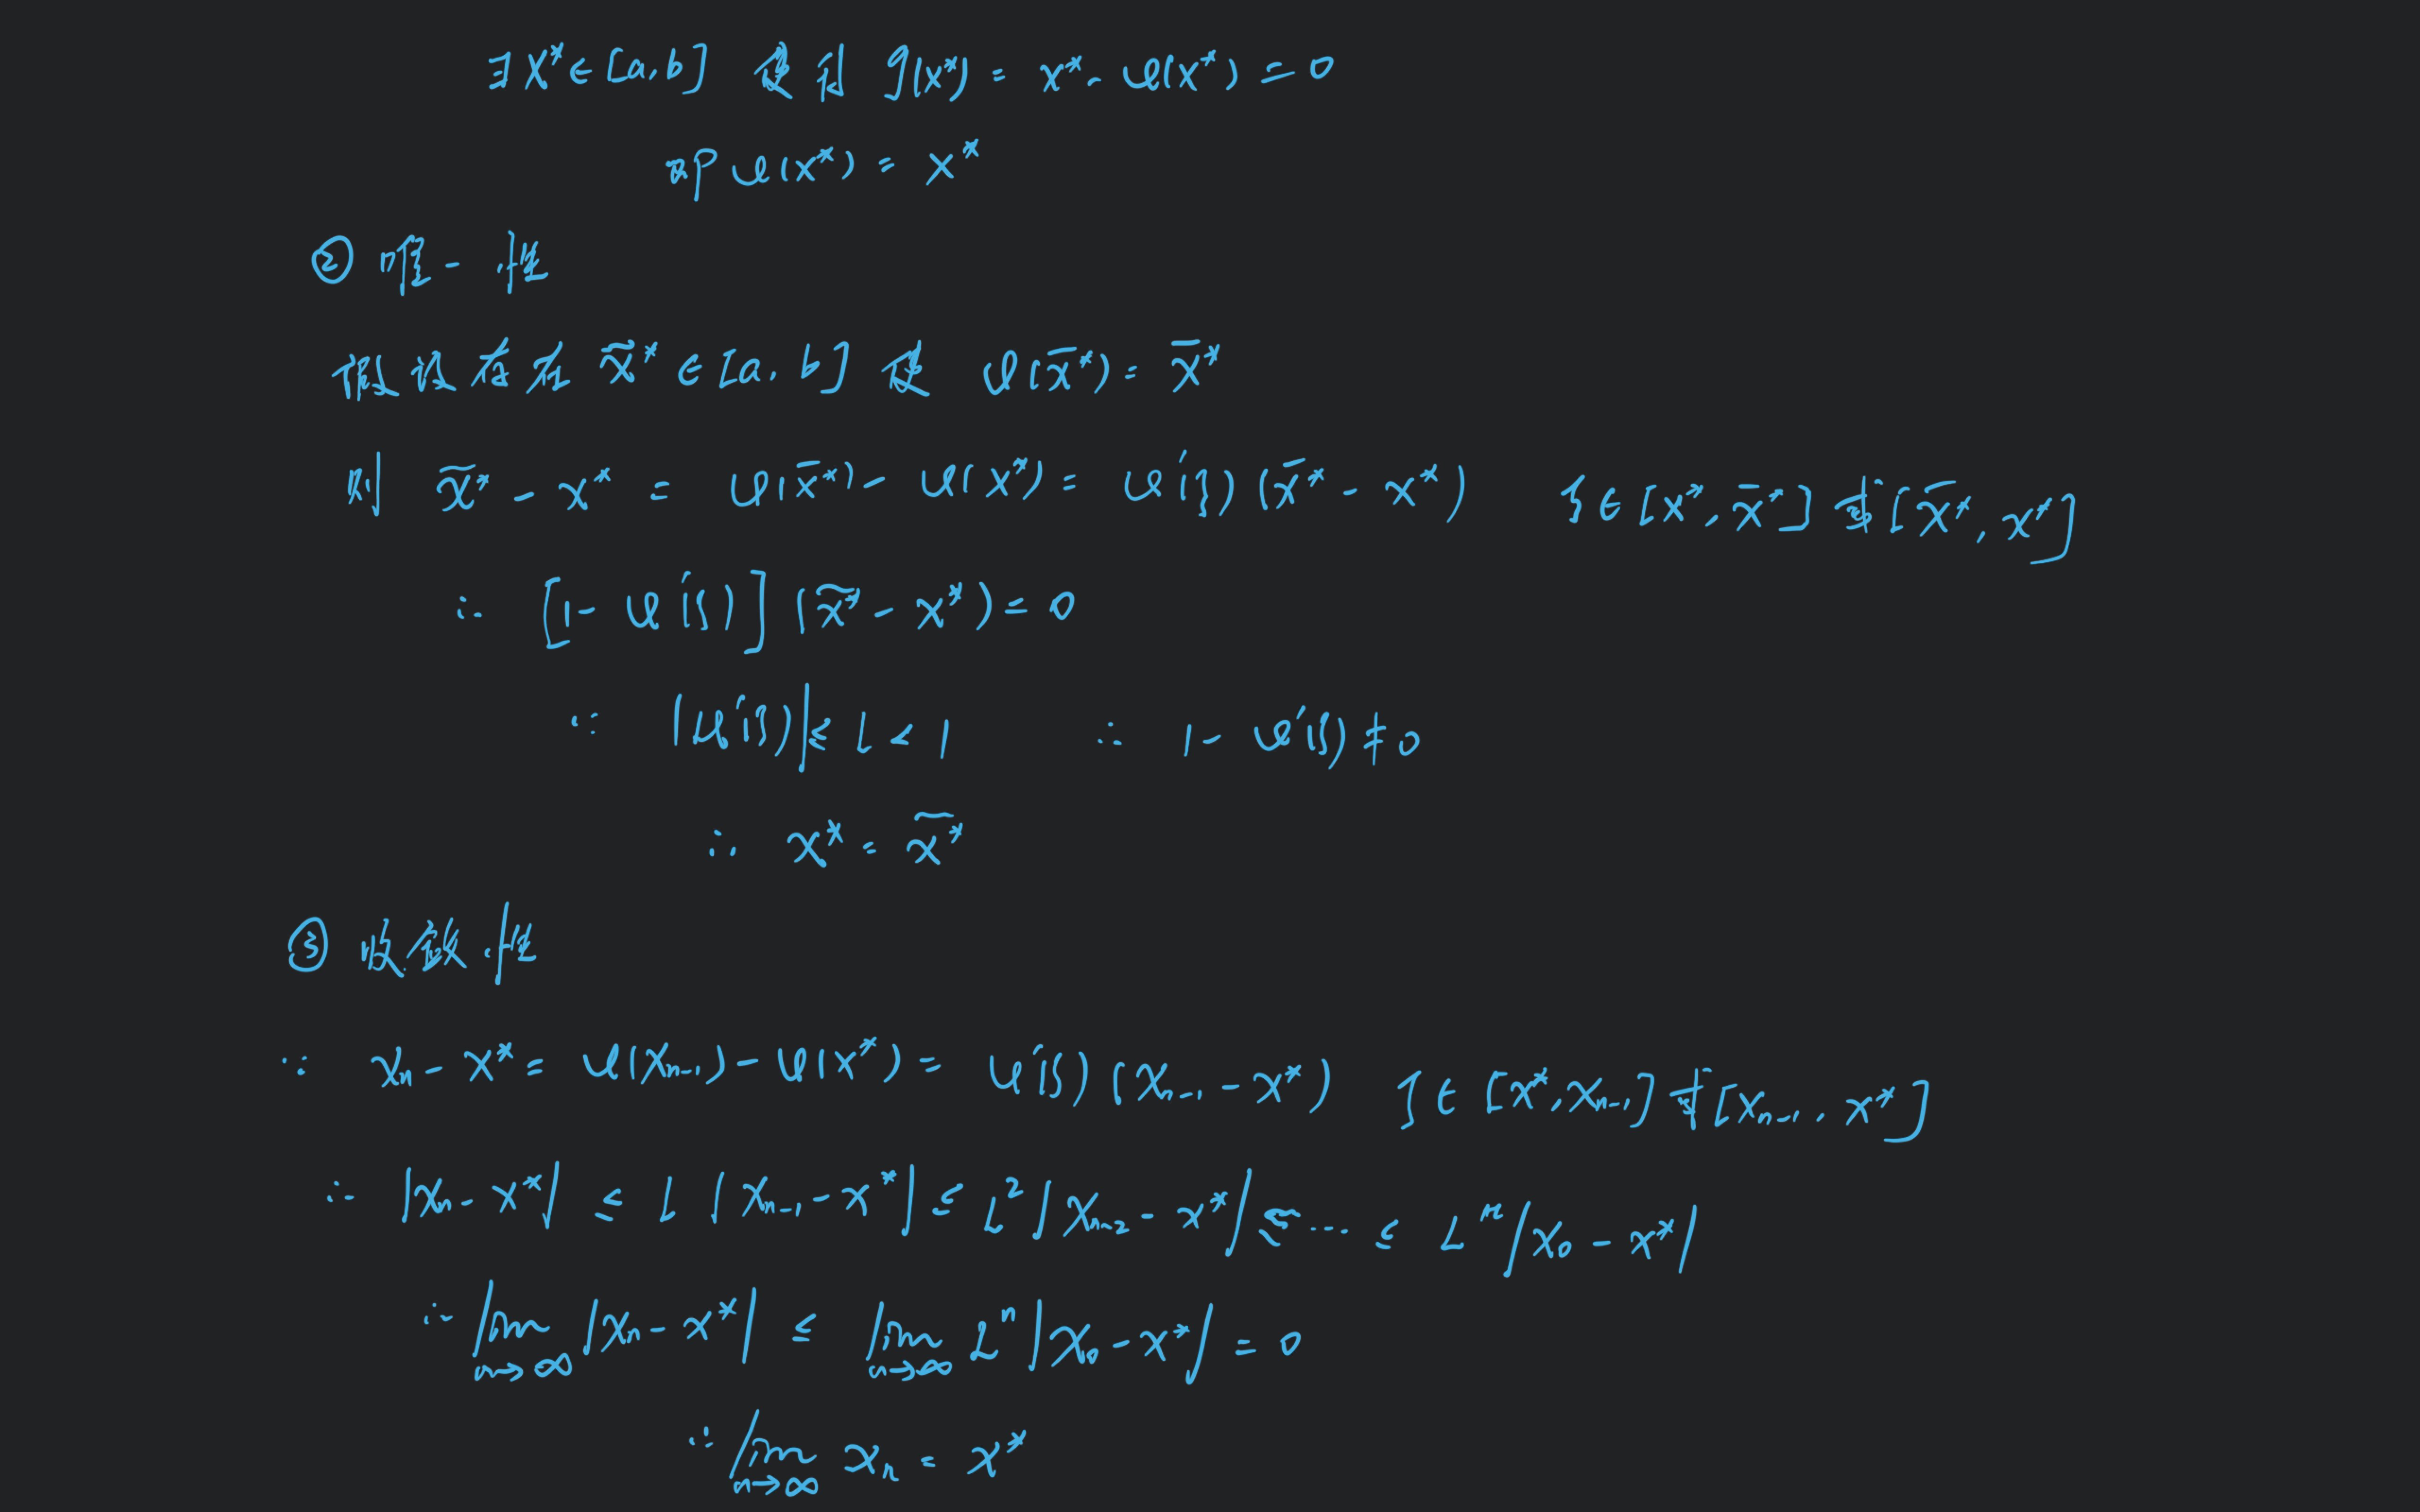 ∃ x* ∈ [a, b] 使得 f(x*) = x* - φ(x*) = 0
即 φ(x*) = x*
② 唯一性
假设存在 x̃* ∈ [a, b] 使 φ(x̄*) = x̄*
则 x̃* - x* = φ(x̄*) - φ(x*) = φ'(ξ)(x̄* - x*) ξ ∈ [x*, x̄*] 或 [x̃*, x*]
∴ [1 - φ'(ξ)](x̃* - x*) = 0
∵ |φ'(ξ)| ≤ L < 1 ∴ 1 - φ'(ξ) ≠ 0
∴ x* = x̃*
③ 收敛性
∵ xₙ - x* = φ(xₙ₋₁) - φ(x*) = φ'(ξ)(xₙ₋₁ - x*) ξ ∈ [x*, xₙ₋₁] 或 [xₙ₋₁, x*]
∴ |xₙ - x*| ≤ L |xₙ₋₁ - x*| ≤ L² |xₙ₋₂ - x*| ≤ ··· ≤ Lⁿ |x₀ - x*|
∴ lim_{n→∞} |xₙ - x*| ≤ lim_{n→∞} Lⁿ |x₀ - x*| = 0
∴ lim_{n→∞} xₙ = x*